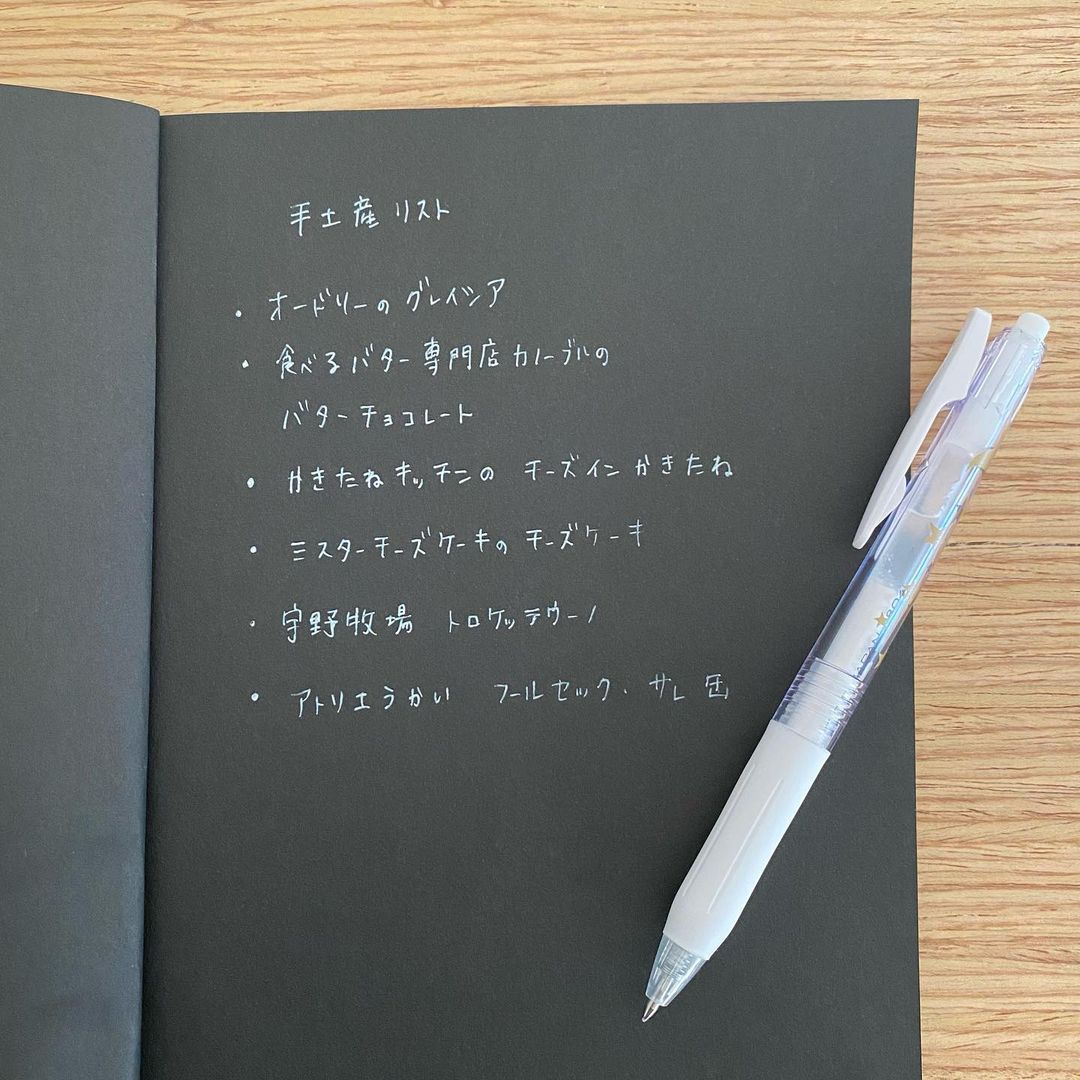 手土産リスト
・オードリーのグレイシア
・食べるバター専門店カノーブルの
バターチョコレート
・かきたねキッチンの チーズインかきたね
・ミスターチーズケーキの チーズケーキ
・宇野牧場 トロケッテウーノ
・アトリエうかい フールセック・サレ缶
JAPAN